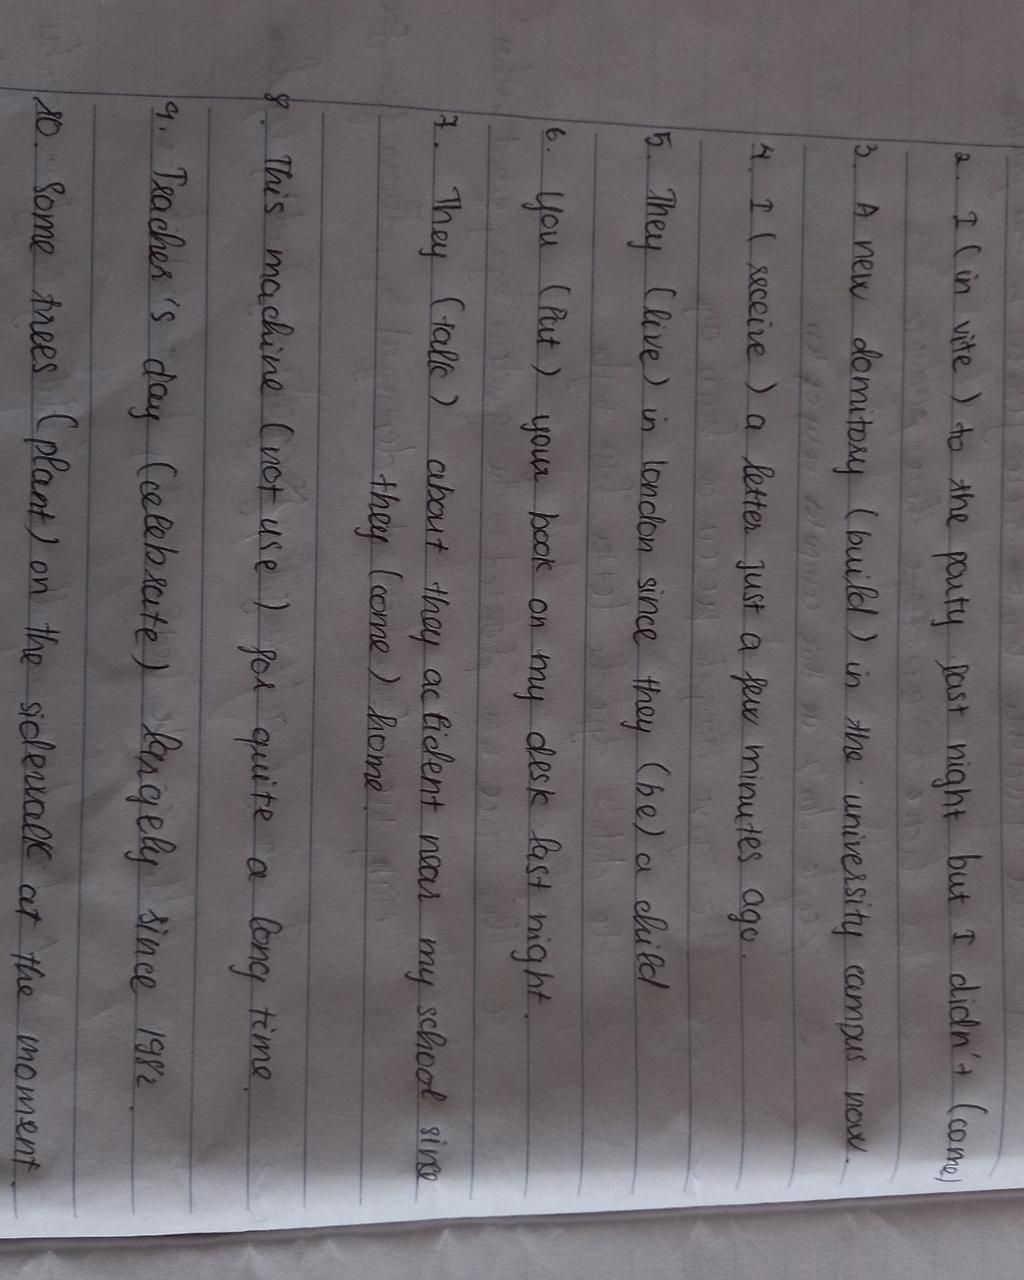 2. I (in vite) to the party last night but I didn't (came)
3. A new domitory (build) in the university campus now.
4. I (receive) a letter just a few minutes ago.
5. They (live) in london since they (be) a child
6. You (Put) your book on my desk last night.
7. They (talk) about they actident near my school since
they (come) home.
8. This machine (not use) for quite a long time.
9. Teacher's day (celebrate) largely since 1982.
10. Some trees (plant) on the sidewalk at the moment.